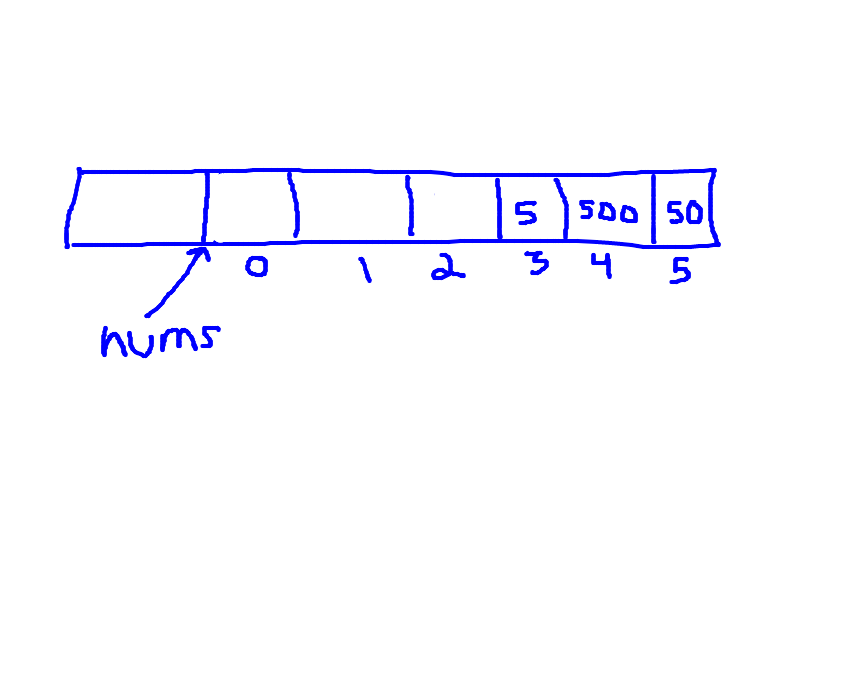 5 500 50
0 1 2 3 4 5
nums